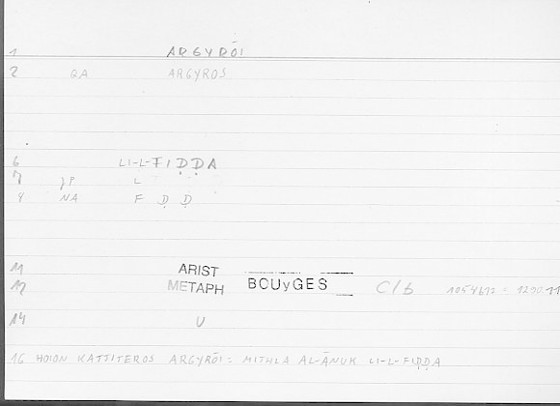 1 ARGYRŌI
2 QA ARGYROS
6 LI-L-FIḌḌA
7 JP L
8 NA F Ḍ Ḍ
11 ARIST
12 METAPH BOUyGES C/b
14 U
16 HOION KATTITEROS ARGYRŌI = MITHLA AL-ĀNUK LI-L-FIḌḌA